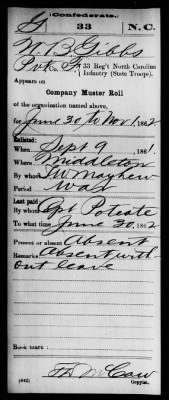 Confederate.
G 33 N.C.
N. B. Gibbs
Pvt. Co. F, 33 Reg't North Carolina
Infantry (State Troops).
Appears on
Company Muster Roll
of the organization named above,
for June 30 to Nov 1, 1862
Enlisted:
When Sept 9, 1861.
Where Middleton
By whom S W Mayhew
Period War
Last paid:
By whom Cpt Poteate
To what time June 30, 1862
Present or absent Absent
Remarks Absent with-
out leave
Book mark:
(642) Copyist.